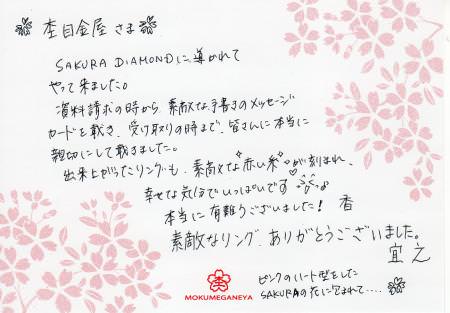 杢目金屋 さま
SAKURA DIAMONDに導かれて
やって来ました。
資料請求の時から、素敵な手書きのメッセージ
カードを戴き、受け取りの時まで、皆さんに本当に
親切にして戴きました。
出来上がったリングも、素敵な"赤い糸"が刻まれ、
幸せな気分でいっぱいです
本当に有難うございました! 香
素敵なリング、ありがとうございました。
宜之
ピンクのハート型をした
SAKURAの花に包まれて....
MOKUMEGANEYA